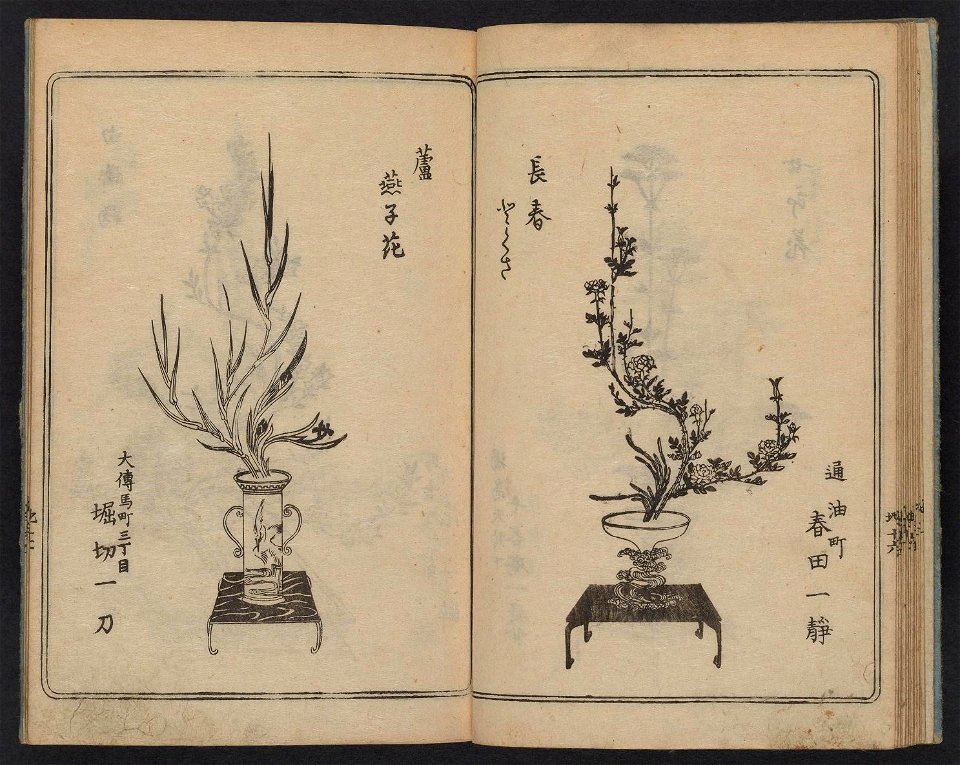 長春
とくさ
通油町
春田一静
蘆
燕子花
大傳馬町三丁目
堀切一刀